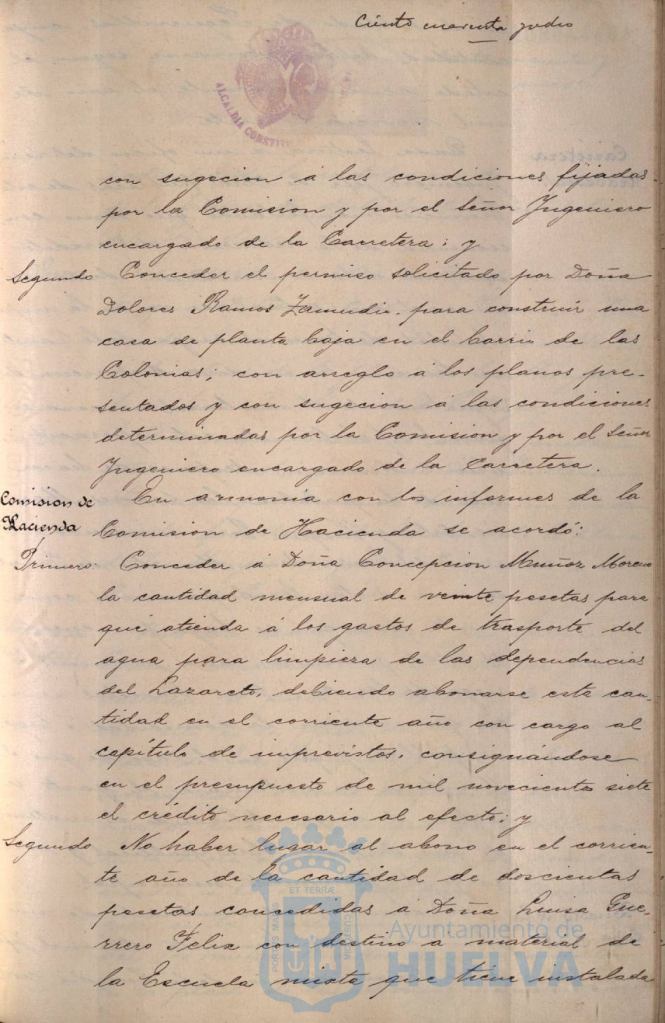 Ciento cuarenta y dos
ALCALDIA CONSTIT
con sugecion á las condiciones fijadas
por la Comision y por el Señor Ingeniero
encargado de la Carretera; y
Segundo Conceder el permiso solicitado por Doña
Dolores Ramos Zamudio para construir una
casa de planta baja en el barrio de las
Colonias; con arreglo á los planos pre-
sentados y con sugecion á las condiciones
determinadas por la Comision y por el Señor
Ingeniero encargado de la Carretera.
Comision de
Hacienda
En armonia con los informes de la
Comision de Hacienda se acordó:
Primero: Conceder á Doña Concepcion Muñoz Moreno
la cantidad mensual de veinte pesetas para
que atienda á los gastos de trasporte del
agua para limpieza de las dependencias
del Lazareto, debiendo abonarse esta can-
tidad en el corriente año con cargo al
capítulo de imprevistos, consignándose
en el presupuesto de mil novecientos siete
el crédito necesario al efecto; y
Segundo No haber lugar al abono en el corrien-
te año de la cantidad de doscientas
pesetas concedidas á Doña Luisa Gue-
rrero Felix con destino a material de
la Escuela mixta que tiene instalada
PORTUS MARIS ET TERRÆ CUSTODIA
Ayuntamiento de
HUELVA